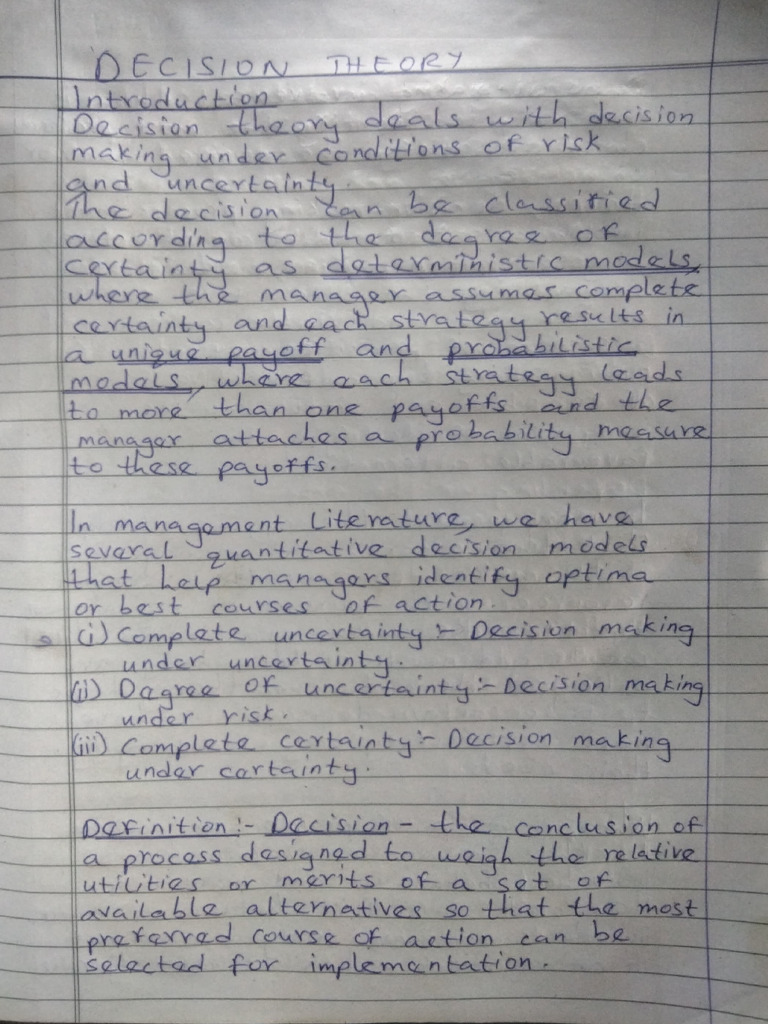 DECISION THEORY
Introduction
Decision theory deals with decision
making under conditions of risk
and uncertainty.
The decision can be classified
according to the degree of
certainty as deterministic models,
where the manager assumes complete
certainty and each strategy results in
a unique payoff and probabilistic
models, where each strategy leads
to more than one payoffs and the
manager attaches a probability measure
to these payoffs.
In management literature, we have
several quantitative decision models
that help managers identify optima
or best courses of action.
(i) Complete uncertainty :- Decision making
under uncertainty.
(ii) Degree of uncertainty :- Decision making
under risk.
(iii) Complete certainty :- Decision making
under certainty.
Definition :- Decision - the conclusion of
a process designed to weigh the relative
utilities or merits of a set of
available alternatives so that the most
preferred course of action can be
selected for implementation.